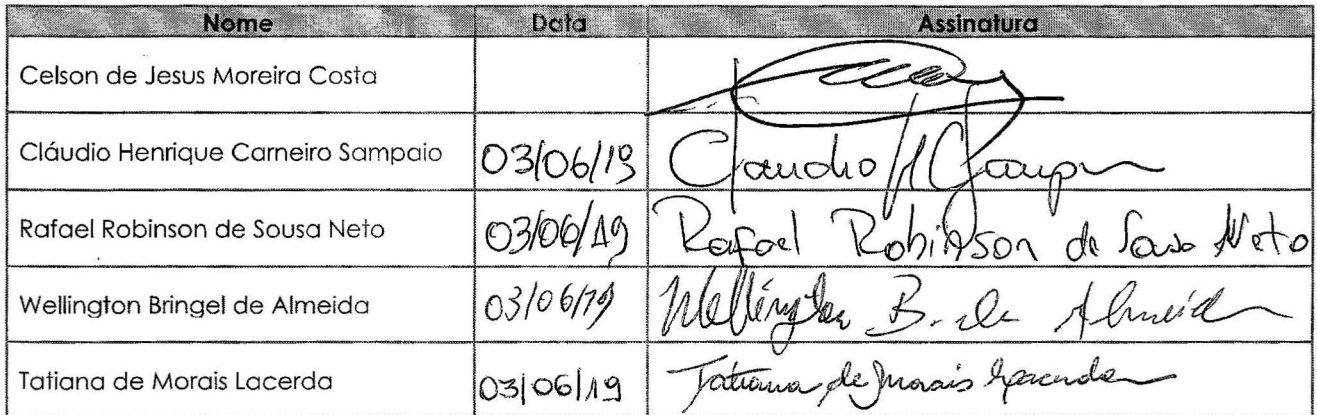 Nome Data Assinatura
Celson de Jesus Moreira Costa
Cláudio Henrique Carneiro Sampaio 03/06/19 Claudio H C
Rafael Robinson de Sousa Neto 03/06/19 Rafael Robinson de Sousa Neto
Wellington Bringel de Almeida 03/06/19 Wellington B. de Almeida
Tatiana de Morais Lacerda 03/06/19 Tatiana de Morais Lacerda